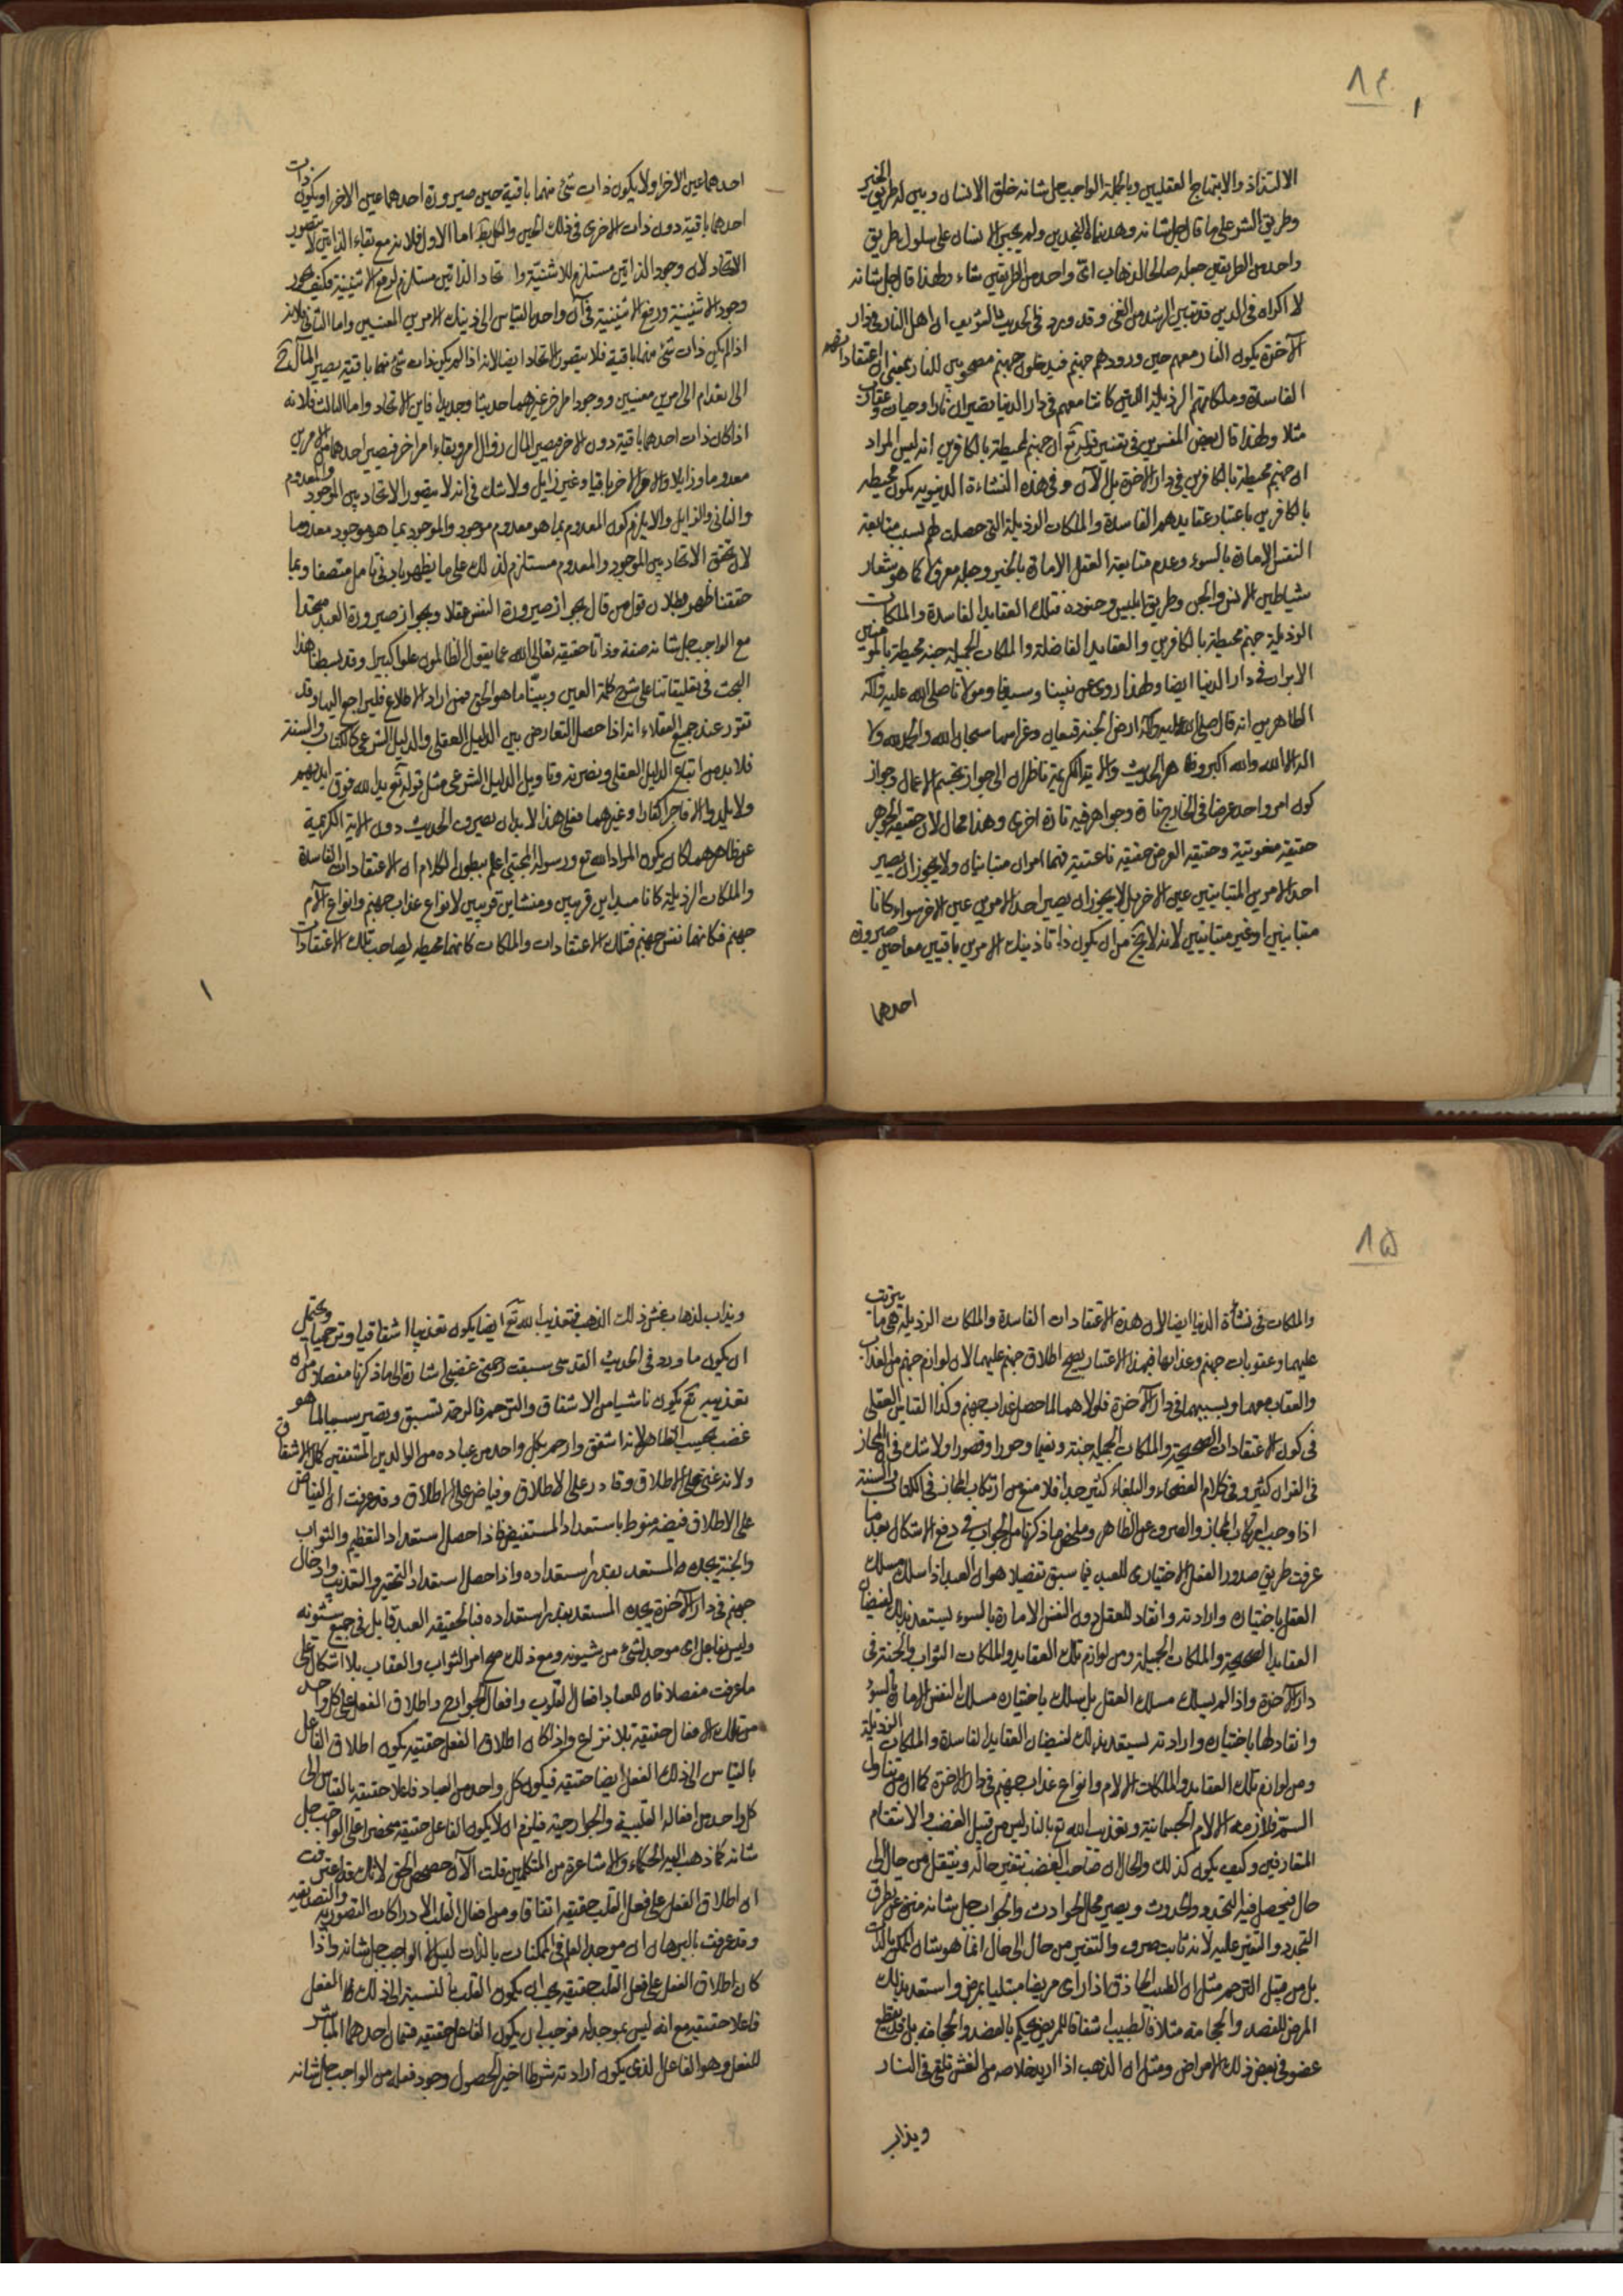 ٨٤
الالتذاذ والابتهاج العقليين وبالجملة الواجب جل شانه خلق الانسان وبين له طريق الخير
وطريق الشر على ما قال جل شانه وهديناه النجدين ولم يجبر الانسان على سلول طريق
واحد من الطريقين جعله صالحا لذهاب اى واحد من الطريقين شاء ولهذا قال جل شانه
لا اكراه فى الدين قد تبين الرشد من الغى وقد ورد فى الحديث الشريف ان اهل النار فى دار
الآخرة يكون النار معهم حين ورودهم جهنم فيدخلون جهنم مصحوبين للنار بمعنى ان اعتقاداتهم
الفاسدة وملكاتهم الرذيلة اللتين كانتا معهم فى دار الدنيا يصيران نارا وحيات وعقارب
مثلا ولهذا قال بعض المفسرين فى تفسير قوله تع ان جهنم لمحيطة بالكافرين انه ليس المراد
ان جهنم محيطة بالكافرين فى دار الاخرة بل الآن وفى هذه النشاءة الدنيوية يكون محيطه
بالكافرين باعتبار عقايدهم الفاسدة والملكات الرذيلة التى حصلت لهم بسبب متابعة
النفس الامارة بالسوء وعدم متابعة العقل الامارة بالخير وجعله معزولا كما هو شعار
شياطين الانس والجن وطريق ابليس وجنوده فتلك العقايد الفاسدة والملكات
الرذيلة جهنم محيطة بالكافرين والعقايد الفاضلة والملكات الجميلة جنة محيطة بالمؤمنين
الابرار فى دار الدنيا ايضا ولهذا روى عن نبينا وسيدنا ومولانا صلى الله عليه وآله
الطاهرين انه قال صلى الله عليه وآله ارض الجنة قيعان وغراسها سبحان الله والحمد لله ولا
اله الا الله والله اكبر وظاهر الحديث والاية الكريمة ناظران الى جواز تجسم الاعمال وجواز
كون امر واحد عرضا فى الخارج تارة وجواهر فيه تارة اخرى وهذا محال لان حقيقة الجوهر
حقيقة منعوتية وحقيقة العرض حقيقة ناعتية فهما امران متباينان ولا يجوز ان يصير
احد الامرين المتباينين عين الاخر بل لا يجوز ان يصير احد الامرين عين الاخر سواء كانا
متباينين او غير متباينين لانه لا يخ من ان يكون ذاتا ذينك الامرين باقيين معا حين صيرورة
احدهما
احدهما عين الاخر او لا يكون ذات شئ منهما باقية حين صيرورة احدهما عين الاخر او يكون ذات
احدهما باقية دون ذات الاخرى فى ذلك الحين والكل بط اما الاول فلانه مع بقاء الذاتين لا يتصور
الاتحاد لان وجود الذاتين مستلزم للاثنينية واتحاد الذاتين مستلزم لرفع الاثنينية فكيف يجوز
وجود الاثنينية ورفع الاثنينية فى آن واحد بالقياس الى ذينك الامرين المعينين واما الثانى فلانه
اذا لم يكن ذات شئ منهما باقية فلا يتصور الاتحاد ايضا لانه اذا لم يكن ذات شئ منهما باقية يصير المآل ح
الى انعدام الى امرين معينين ووجود امر اخر غيرهما حديثا وجديدا فاين الاتحاد واما الثالث فلانه
اذا كان ذات احدهما باقية دون الاخر فيصير المآل زوال امر وبقاء امر اخر فيصير احدهما من الامرين
معدوما وزايلا والامر الاخر باقيا وغير زايل ولا شك فى انه لا يتصور الاتحاد بين الموجود والمعدوم
والفانى والزايل والا يلزم كون المعدوم بما هو معدوم موجود والموجود بما هو موجود معدوما
لان تحقق الاتحاد بين الموجود والمعدوم مستلزم لذلك على ما يظهر بادنى تامل متصفا وبما
حققنا ظهر بطلان قول من قال بجواز صيرورة النفس عقلا وبجواز صيرورة العبد متحدا
مع الواجب جل شانه صفة وذاتا حقيقة تعالى الله عما يقول الظالمون علوا كبيرا وقد بسطنا هذا
البحث فى تعليقاتنا على شرح حكمة العين وبينا ما هو الحق فمن اراد الاطلاع فليراجع اليها وقد
تقرر عند جميع العقلاء انه اذا حصل التعارض بين الدليل العقلى والدليل الشرعى كالكتاب والسنة
فلا بد من اتباع الدليل العقلى ونصرته وتاويل الدليل الشرعى مثل قوله تع يد الله فوق ايديهم
ولا يلدوا الا فاجرا كفارا وغيرهما فعلى هذا لا بد ان يصرف الحديث دون الاية الكريمة
عن ظاهرهما كان يكون المراد الله تع ورسوله المجتبى اعلم ببطون الكلام ان الاعتقادات الفاسدة
والملكات الرذيلة كانا مبداين قريبين ومنشاين قريبين لانواع عذاب جهنم وانواع الآم
جهنم فكانهما نفس جهنم فتلك الاعتقادات والملكات كانها محيطه لصاحب تلك الاعتقادات
٨٥
والملكات فى نشأة الدنيا ايضا لان هذه الاعتقادات الفاسدة والملكات الرذيلة هى ما يترتب
عليهما وعقوبات جهنم وعذابها فبهذا الاعتبار يصح اطلاق جهنم عليهما لان لوازم جهنم من العذاب
والعقاب معهما وبسببهما فى دار الآخرة فلولاهما لما حصل عذاب جهنم وكذا القياس العقلى
فى كون الاعتقادات الصحيحة والملكات الجميلة جنة ونعيما وحورا وقصورا ولا شك فى ان المجاز
فى القران كثير وفى كلام الفصحاء والبلغاء كثير جدا فلا منع من ارتكاب المجاز فى الكتاب والسنة
اذا وجب ارتكاب المجاز والصرف عن الظاهر وملخص ما ذكرنا من الجواب فى دفع الاشكال بعد ما
عرفت طريق صدور الفعل الاختيارى للعبد فيما سبق تفصيلا هو ان العبد اذا سلك مسلك
العقل باختياره وارادته وانقاد للعقل دون النفس الامارة بالسوء ليستعد بذلك لفيضان
العقايد الصحيحة والملكات الجميلة ومن لوازم تلك العقايد والملكات الثواب والجنة فى
دار الآخرة واذا لم يسلك مسلك العقل بل يسلك باختياره مسلك النفس الامارة بالسوء
وانقاد لها باختياره وارادته ليستعد بذلك لفيضان العقايد الفاسدة والملكات الرذيلة
ومن لوازم تلك العقايد والملكات الالام وانواع عذاب جهنم فى دار الاخرة كما ان من تناول
السم فلازمه الالام الجسمانية وتعذيب الله تع بالنار ليس من قبيل الغضب والانتقام
المتعارفين وكيف يكون كذلك والحال ان صاحب الغضب يتغير حاله وينتقل من حال الى
حال فيحصل فيه التجدد والحدوث ويصير محل الحوادث والجواب جل شانه منزه عن تطرق
التجدد والتغير عليه لانه ثابت صرف والتغير من حال الى حال انما هو شان الممكن بالذات
بل من قبيل الترحم مثل ان الطبيب الحاذق اذا راى مريضا مبتليا بمرض واستعد بذلك
المرض للفصد والحجامة مثلا فالطبيب اشفاقا للمريض يحكم بالفصد والحجامة بل قد يقطع
عضو فى بعض ذلك الامراض ومثل ان الذهب اذا اريد خلاصه من الغش تلقى فى النار
ويذاب
ويذاب لذهاب غش ذلك الذهب فتعذيب الله تع ايضا يكون تعذيبا اشفاقيا وترحميا ويحتمل
ان يكون ما ورد فى الحديث القدسى سبقت رحمتى غضبى اشارة الى ما ذكرنا مفصلا من ان
تعذيبه تع يكون ناشيا من الاشفاق والترحم فالرحمة تسبق وتصير سببا لما هو
غضب بحسب الظاهر لانه اشفق وارحم بكل واحد من عباده من الوالدين المشفقين كمال الاشفاق
ولانه غنى على الاطلاق وقادر على الاطلاق وفياض على الاطلاق وقد عرفت ان الفياض
على الاطلاق فيضه منوط باستعداد المستفيض فاذا حصل استعداد التعظيم والثواب
والجنة يجده المستعد بقدر استعداده واذا حصل استعداد التحقير والتعذيب وادخال
جهنم فى دار الآخرة يجده المستعد بقدر استعداده فبالحقيقة العبد قابل فى جميع شئونه
وليس بفاعل اى موجد لشئ من شيونه ومع ذلك صح امر الثواب والعقاب بلا اشكال على
ما عرفت مفصلا فان للعباد افعال القلوب وافعال الجوارح واطلاق الفعل على كل واحد
من تلك الافعال حقيقة بلا نزاع واذا كان اطلاق الفعل حقيقة يكون اطلاق الفاعل
بالقياس الى ذلك الفعل ايضا حقيقة فيكون كل واحد من العباد فاعلا حقيقة بالقياس الى
كل واحد من افعاله القلبية والجوارحية فيلزم ان لا يكون الفاعل حقيقة منحصرا على الواجب جل
شانه كما ذهب اليه الحكماء والاشاعرة من المتكلمين قلت الآن حصحص الحق لانك قد اعترفت
ان اطلاق الفعل على فعل القلب حقيقة اتفاقا ومن افعال القلب الادراكات التصورية والتصديقية
وقد عرفت بالبرهان ان موجد العلم فى الممكنات بالذات ليس الا الواجب جل شانه واذا
كان اطلاق الفعل على فعل القلب حقيقة يجب ان يكون القلب بالنسبة الى ذلك الفعل
فاعلا حقيقة مع انه ليس بموجد له فوجب ان يكون الفاعل حقيقة قسمان احدهما المباشر
للفعل وهو الفاعل الذى يكون ارادته شرطا اخيرا لحصول وجود فعله من الواجب جل شانه